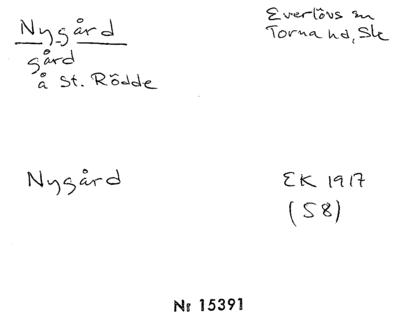 Nygård
gård
å St. Rödde
Everlövs sn
Torna hd, Sk
Nygård
EK 1917
(S8)
Nr 15391